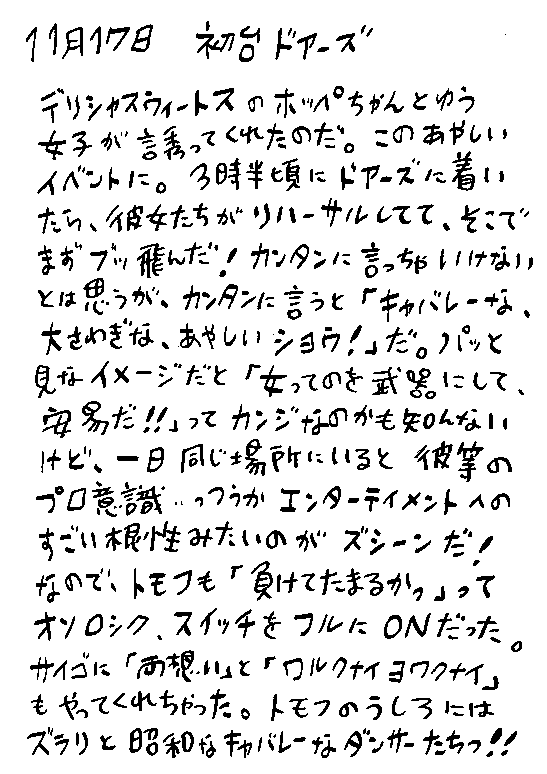 11月17日 初台ドアーズ
デリシャスウィートスのホッペちゃんとゆう
女子が誘ってくれたのだ。このあやしい
イベントに。3時半頃にドアーズに着い
たら、彼女たちがリハーサルしてて、そこで
まずブッ飛んだ!カンタンに言っちゃいけない
とは思うが、カンタンに言うと「キャバレーな、
大さわぎな、あやしいショウ!」だ。パッと
見なイメージだと「女ってのを武器にして、
安易だ!!」ってカンジなのかも知んない
けど、一日同じ場所にいると彼等の
プロ意識‥っつうかエンターテイメントへの
すごい根性みたいのがズシーンだ!
なので、トモフも「負けてたまるかっ」って
オソロシク、スイッチをフルにONだった。
サイゴに「両想い」と「ワルクナイヨワクナイ」
もやってくれちゃった。トモフのうしろには
ズラリと昭和なキャバレーなダンサーたちっ!!